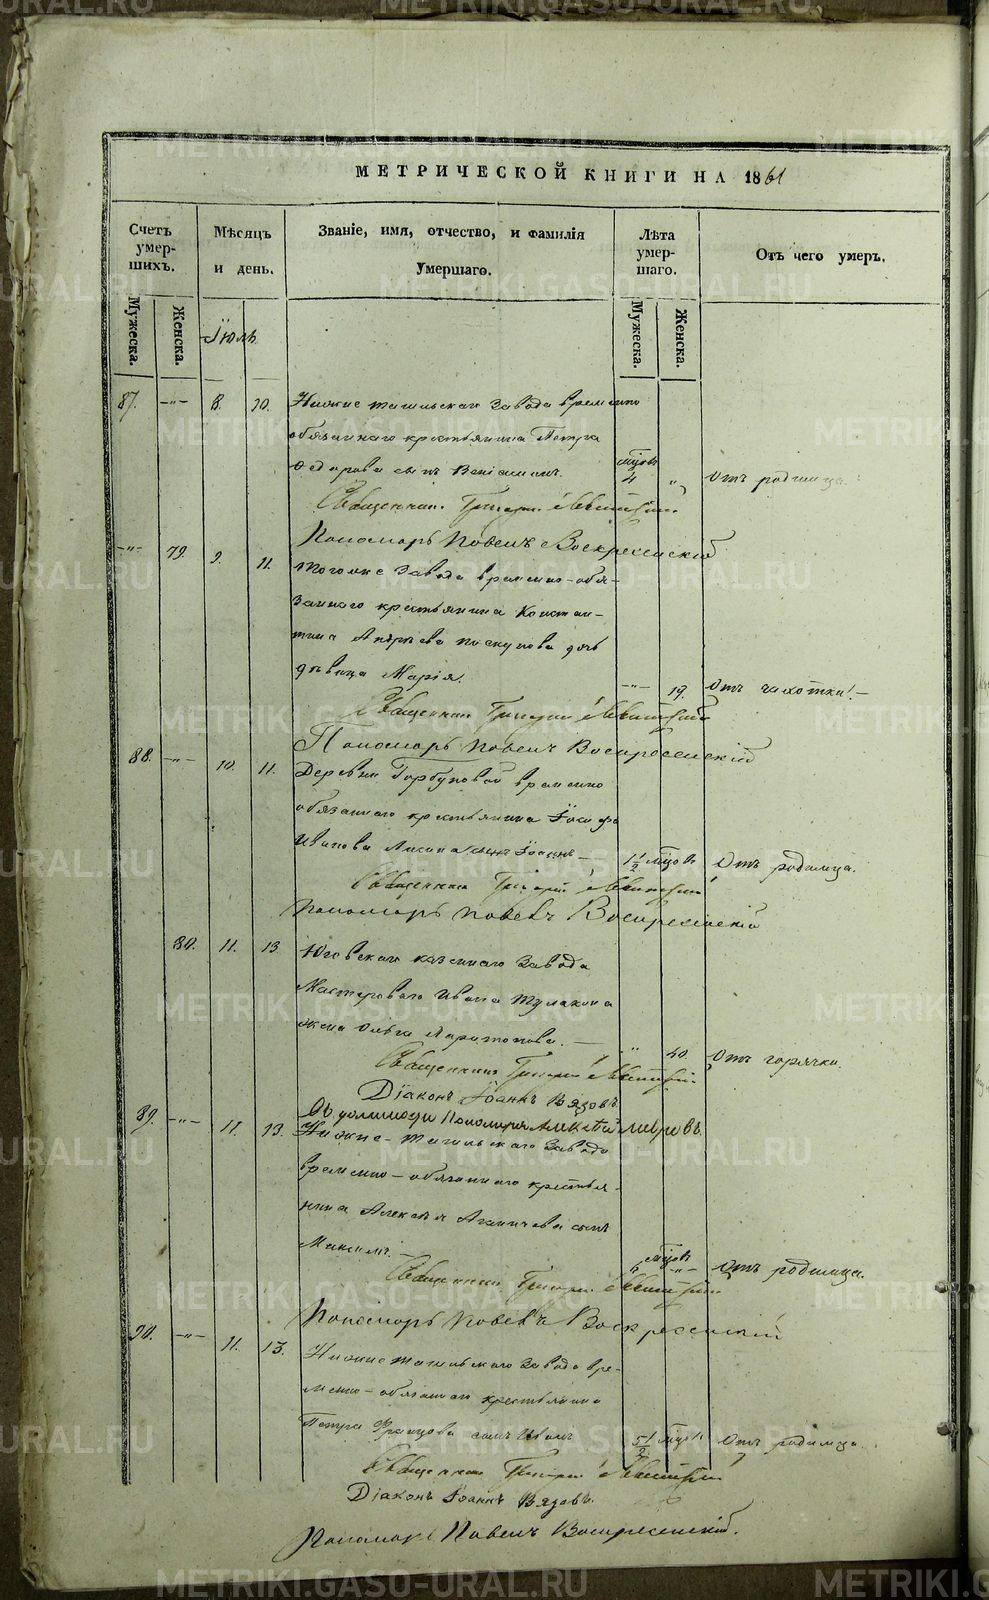 МЕТРИЧЕСКОЙ КНИГИ НА 1861
Счетъ умер-шихъ.
Мѣсяцъ и день.
Званіе, имя, отчество, и фамилія Умершаго.
Лѣта умер-шаго.
Отъ чего умеръ.
Мужеска.
Женска.
Іюль
Мужеска.
Женска.
87. -"- 8. 10. Нижне тагильскаго завода временно
обязаннаго крестьянина Петра
Федорова сынъ Веніаминъ. 4 мцовъ " Отъ родимца.
Священникъ Григорій Левитскій
Пономарь Павелъ Воскресенскій
-"- 79. 9. 11. Тогоже завода временно-обя-
заннаго крестьянина Констан-
тина дочь
дѣвица Марія. -"- 19. Отъ чахотки. -
Священникъ Григорій Левитскій
Пономарь Павелъ Воскресенскій
88. -"- 10. 11. Деревни Горбуновой временно
обязаннаго крестьянина Іосифа
Иванова сынъ Іоаннъ - 1 1/2 мцовъ Отъ родимца.
Священникъ Григорій Левитскій
Пономарь Павелъ Воскресенскій
80. 11. 13. Юговскаго казеннаго завода
Мастероваго Ивана
жена Ольга Харитонова. - " 40. Отъ горячки.
Священникъ Григорій Левитскій
Діаконъ Іоаннъ Вязовъ
Пономаря Алексѣй
89. -"- 11. 13. Нижне-тагильскаго завода
временно-обязаннаго крестья-
нина Алексѣя сынъ
Максимъ. - 6 мцовъ -"- Отъ родимца.
Священникъ Григорій Левитскій
Пономарь Павелъ Воскресенскій
90. -"- 11. 13. Нижнетагильскаго завода вре-
менно-обязаннаго крестьянина
Петра сынъ Иванъ 5 1/2 мцовъ Отъ родимца.
Священникъ Григорій Левитскій
Діаконъ Іоаннъ Вязовъ.
Пономарь Павелъ Воскресенскій.
METRIKI.GASO-URAL.RU